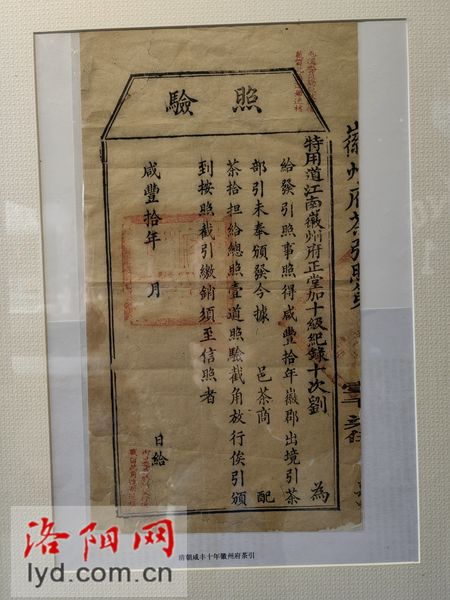 照驗
特用道江南徽州府正堂加十級紀錄十次劉 為
給發引照事照得咸豐拾年徽郡出境引茶
部引未奉頒發今據 邑茶商 配
茶拾担給總照壹道照驗截角放行俟引頒
到按照截引繳銷須至信照者
咸豐拾年 月
日給
清朝咸丰十年徽州府茶引
洛阳网
lyd.com.cn